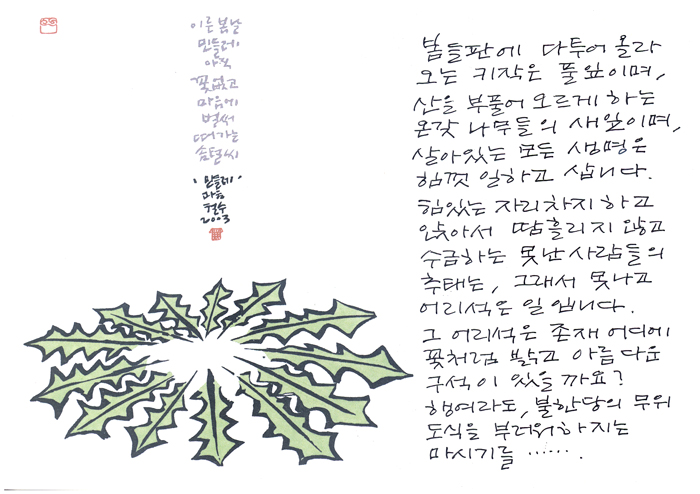 이른 봄날
민들레
아직
꽃 없고
마음에
벌써
떠가는
솜털 씨
'민들레'
마음
철수
2003
봄 들판에 다투어 올라
오는 키작은 풀잎이며,
산을 부풀어 오르게 하는
온갖 나무들의 새잎이며,
살아있는 모든 생명은
힘껏 일하고 삽니다.
힘있는 자리 차지하고
앉아서 땀흘리지 않고
수급하는 못난 사람들의
추태는, 그래서 못나고
어리석은 일입니다.
그 어리석은 존재 어디에
꽃처럼 밝고 아름다운
구석이 있을까요?
행여라도, 불한당의 무위
도식을 부러워하지는
마시기를 …….